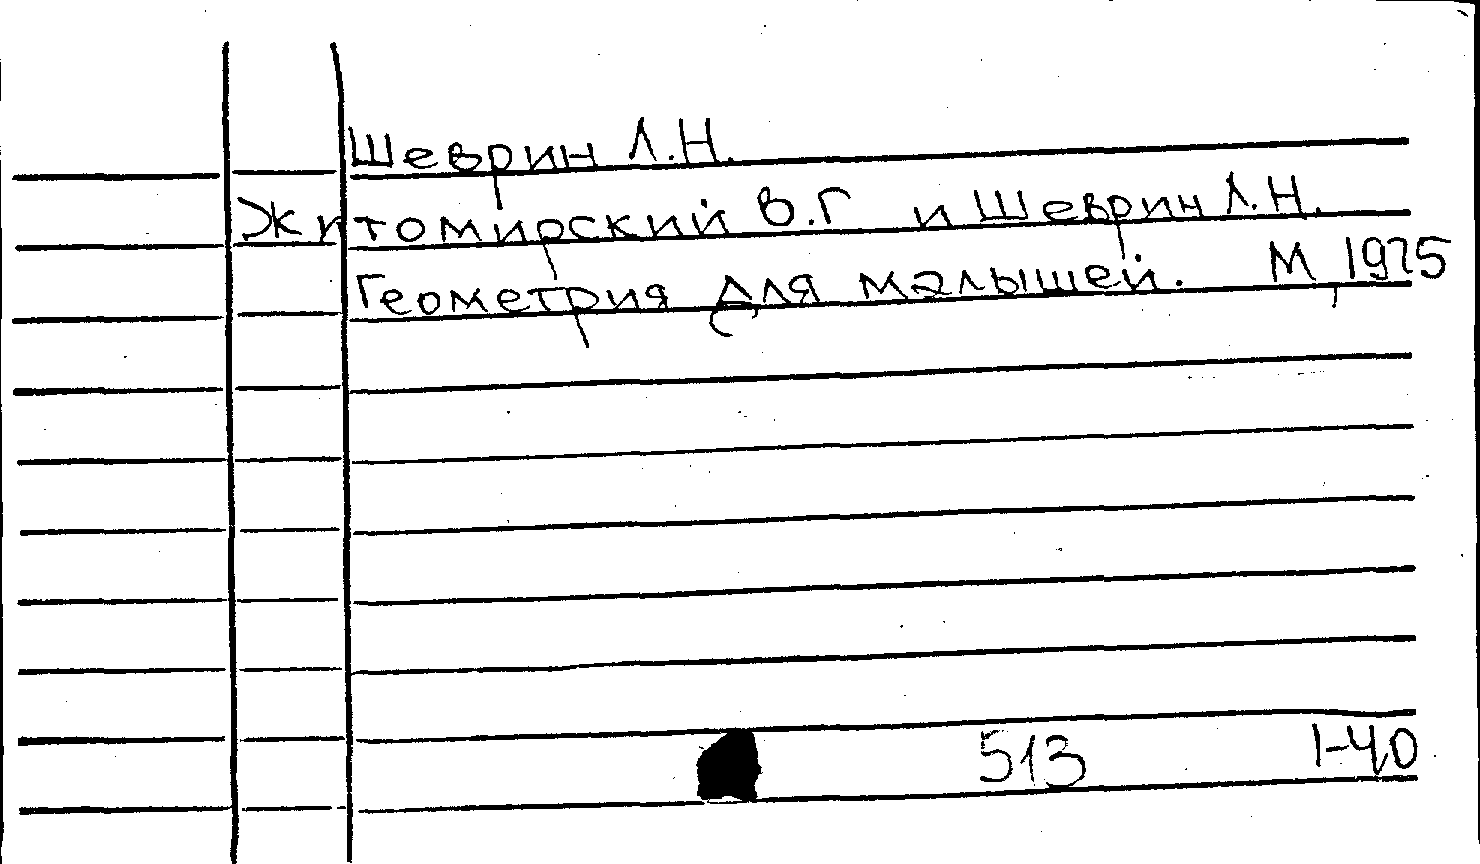 Шеврин Л.Н.
Житомирский В.Г и Шеврин Л.Н.
Геометрия для малышей. М, 1975
513 1-40